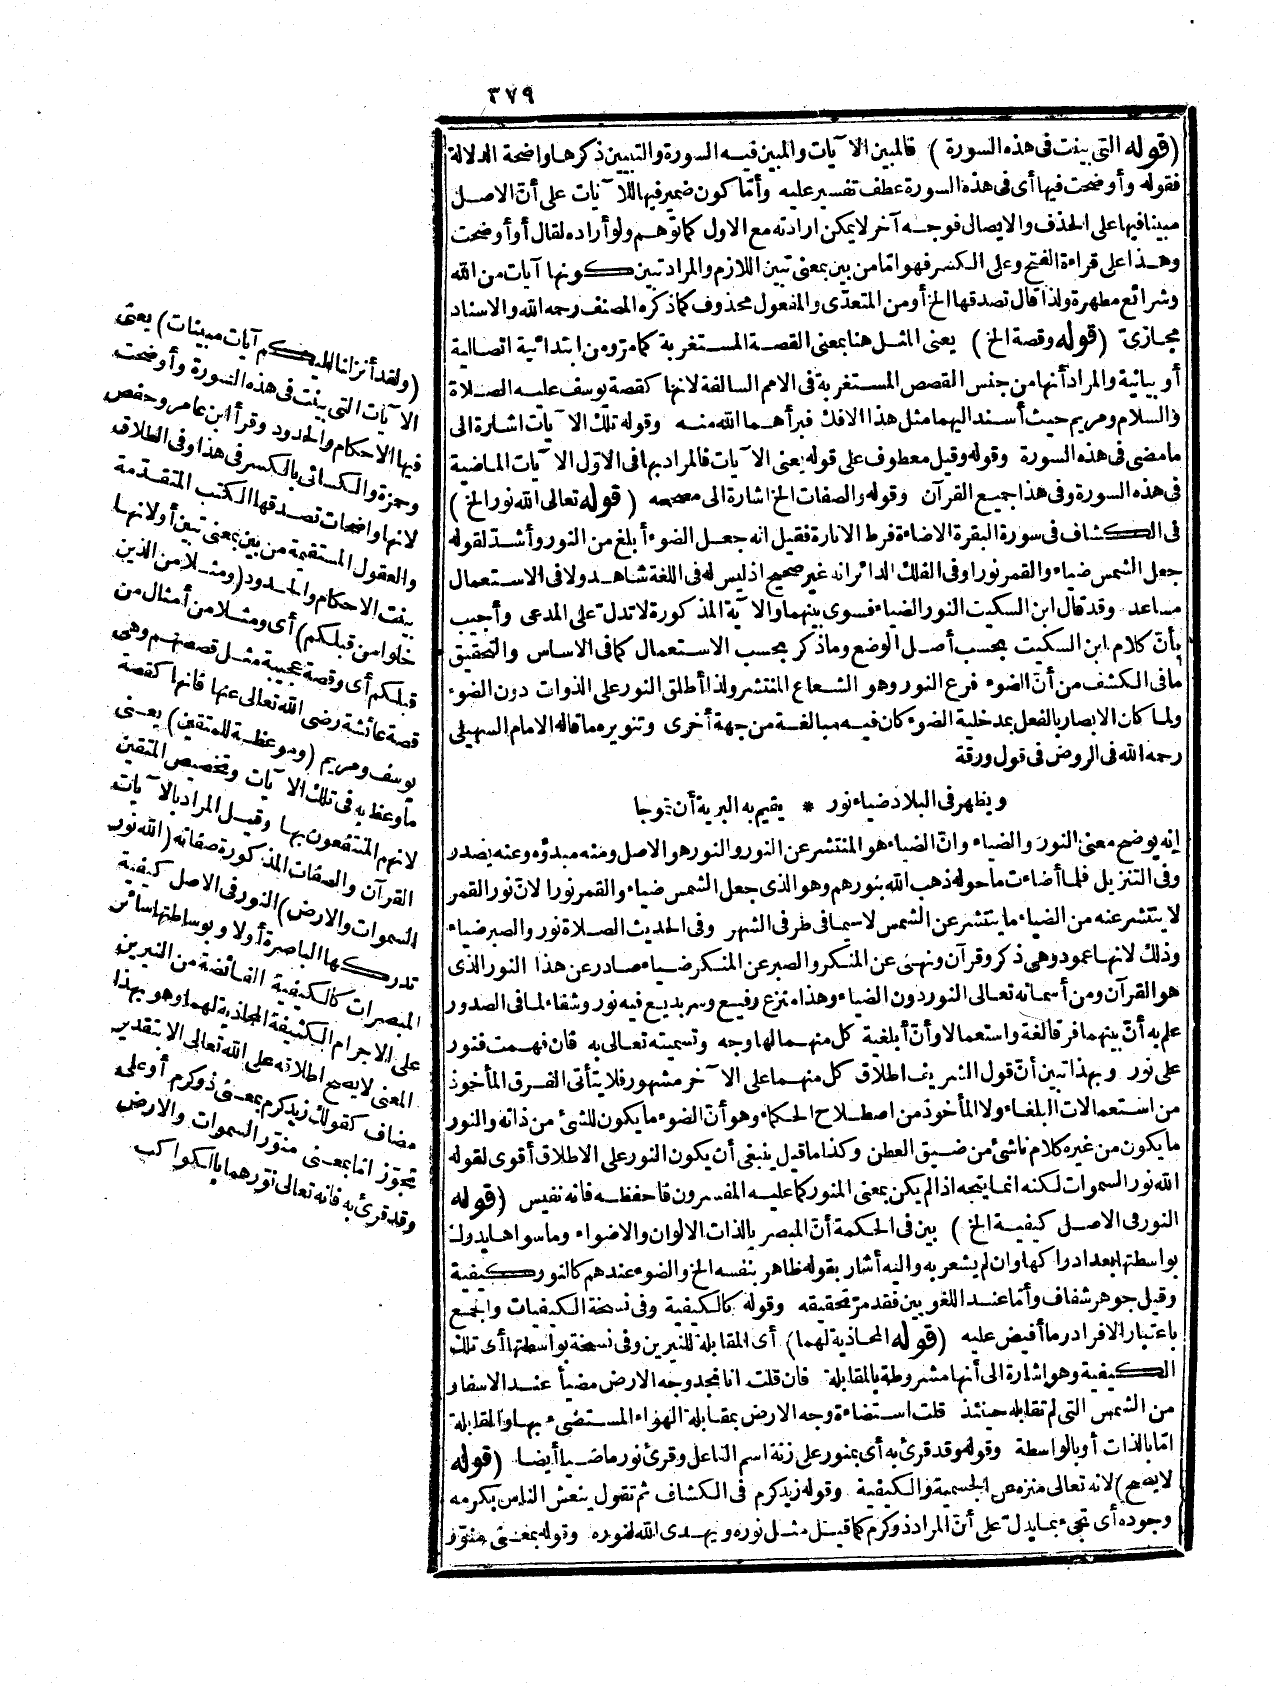 ٣٧٩
(قوله التى بينت فى هذه السورة) فالمبين الآيات والمبين فيه السورة والتبيين ذكرها واضحة الدلالة
فقوله وأوضحت فيها أى فى هذه السورة عطف تفسير عليه وأمّا كون ضمير فيها للآيات على أنّ الاصل
مبينا فيها على الحذف والايصال فوجه آخر لا يمكن ارادته مع الاول كما توهم ولو أراده لقال أو أوضحت
وهذا على قراءة الفتح وعلى الكسر فهو امّا من بين بمعنى تبين اللازم والمراد تبين كونها آيات من الله
وشرائع مطهرة ولذا قال تصدقها الخ أو من المتعدّى والمفعول محذوف كما ذكره المصنف رحمه الله والاسناد
مجازىّ (قوله وقصة الخ) يعنى المثل هنا بمعنى القصة المستغربة كما مرّ ومن ابتدائية اتصالية
أو بيانية والمراد أنها من جنس القصص المستغربة فى الامم السالفة لانها كقصة يوسف عليه الصلاة
والسلام ومريم حيث أسند اليهما مثل هذا الافك فبرأهما الله منه وقوله تلك الآيات اشارة الى
ما مضى فى هذه السورة وقوله وقيل معطوف على قوله يعنى الآيات فالمراد بها فى الاوّل الآيات الماضية
فى هذه السورة وفى هذا جميع القرآن وقوله والصفات الخ اشارة الى مصححه (قوله تعالى الله نور الخ)
فى الكشاف فى سورة البقرة الاضاءة فرط الانارة فقيل انه جعل الضوء أبلغ من النور وأشدّ لقوله
جعل الشمس ضياء والقمر نورا وفى الفلك الدائر انه غير صحيح اذ ليس له فى اللغة شاهد ولا فى الاستعمال
مساعد وقد قال ابن السكيت النور الضياء فسوى بينهما والآية المذكورة لا تدلّ على المدعى وأجيب
بأنّ كلام ابن السكيت بحسب أصل الوضع وما ذكر بحسب الاستعمال كما فى الاساس والتحقيق
ما فى الكشف من أنّ الضوء فرع النور وهو الشعاع المنتشر ولذا أطلق النور على الذوات دون الضوء
ولما كان الابصار بالفعل بمدخلية الضوء كان فيه مبالغة من جهة أخرى وتنويره ما قاله الامام السهيلى
رحمه الله فى الروض فى قول ورقة
ويظهر فى البلاد ضياء نور * يقيم به البرية أن تموجا
إنه يوضح معنى النور والضياء وانّ الضياء هو المنتشر عن النور والنور هو الاصل ومنه مبدؤه وعنه يصدر
وفى التنزيل فلما أضاءت ما حوله ذهب الله بنورهم وهو الذى جعل الشمس ضياء والقمر نورا لانّ نور القمر
لا ينتشر عنه من الضياء ما ينتشر عن الشمس لا سيما فى طرفى الشهر وفى الحديث الصلاة نور والصبر ضياء
وذلك لانها عمود وهى ذكر وقرآن ونهى عن المنكر والصبر عن المنكر ضياء صادر عن هذا النور الذى
هو القرآن ومن أسمائه تعالى النور دون الضياء وهذا منزع رفيع وسر بديع فيه نور وشفاء لما فى الصدور
علم به أنّ بينهما فرقا لغة واستعمالا وأنّ أبلغية كل منهما لها وجه وتسميته تعالى به فان فهمت فنور
على نور وبهذا تبين أنّ قول الشريف اطلاق كل منهما على الآخر مشهور فلا يتأتى الفرق المأخوذ
من استعمالات البلغاء ولا المأخوذ من اصطلاح الحكماء وهو أنّ الضوء ما يكون للشئ من ذاته والنور
ما يكون من غيره كلام ناشئ من ضيق العطن وكذا ما قيل ينبغى أن يكون النور على الاطلاق أقوى لقوله
الله نور السموات لكنه انما يتجه اذا لم يكن بمعنى المنور كما عليه المفسرون فاحفظه فانه نفيس (قوله
النور فى الاصل كيفية الخ) بين فى الحكمة أنّ المبصر بالذات الالوان والاضواء وما سواها يدرك
بواسطتها بعد ادراكها وان لم يشعر به واليه أشار بقوله ظاهر بنفسه الخ والضوء عندهم كالنور كيفية
وقيل جوهر شفاف وأمّا عند اللغويين فقد مرّ تحقيقه وقوله كالكيفية وفى نسخة الكيفيات والجمع
باعتبار الافراد وما أفيض عليه (قوله المحاذية لهما) أى المقابلة للنيرين وفى نسخة بواسطتها أى تلك
الكيفية وهو اشارة الى أنها مشروطة بالمقابلة فان قلت انا نجد وجه الارض مضيأ عند الاسفار
من الشمس التى لم تقابله حينئذ قلت استضاءة وجه الارض بمقابلة الهواء المستضىء بها والمقابلة
امّا بالذات أو بالواسطة وقوله وقد قرئ به أى بمنور على زنة اسم الفاعل وقرئ نور ماضيا أيضا (قوله
لا يصح) لانه تعالى منزه عن الجسمية والكيفية وقوله زيد كرم فى الكشاف ثم تقول ينعش الناس بكرمه
وجوده أى تجىء بما يدلّ على أنّ المراد ذو كرم كما قيل مثل نوره ويهدى الله لنوره وقوله بمعنى منوّر
(ولقد أنزلنا اليكم آيات مبينات) يعنى
الآيات التى بينت فى هذه السورة وأوضحت
فيها الاحكام والحدود وقرأ ابن عامر وحفص
وحمزة والكسائى بالكسر فى هذا وفى الطلاق
لانها واضحات تصدقها الكتب المتقدّمة
والعقول المستقيمة من بين بمعنى تبين أو لانها
بينت الاحكام والحدود (ومثلا من الذين
خلوا من قبلكم) أى ومثلا من أمثال من
قبلكم أى وقصة عجيبة مثل قصصهم وهى
قصة عائشة رضى الله تعالى عنها فانها كقصة
يوسف ومريم (وموعظة للمتقين) يعنى
ما وعظ به فى تلك الآيات وتخصيص المتقين
لانهم المنتفعون بها وقيل المراد بالآيات
القرآن والصفات المذكورة صفاته (الله نور
السموات والارض) النور فى الاصل كيفية
تدركها الباصرة أولا وبوساطتها سائر
المبصرات كالكيفية الفائضة من النيرين
على الاجرام الكثيفة المحاذية لهما وهو بهذا
المعنى لا يصح اطلاقه على الله تعالى الا بتقدير
مضاف كقولك زيد كرم بمعنى ذو كرم أو على
تجوّز امّا بمعنى منوّر السموات والارض
وقد قرئ به فانه تعالى نوّرهما بالكواكب